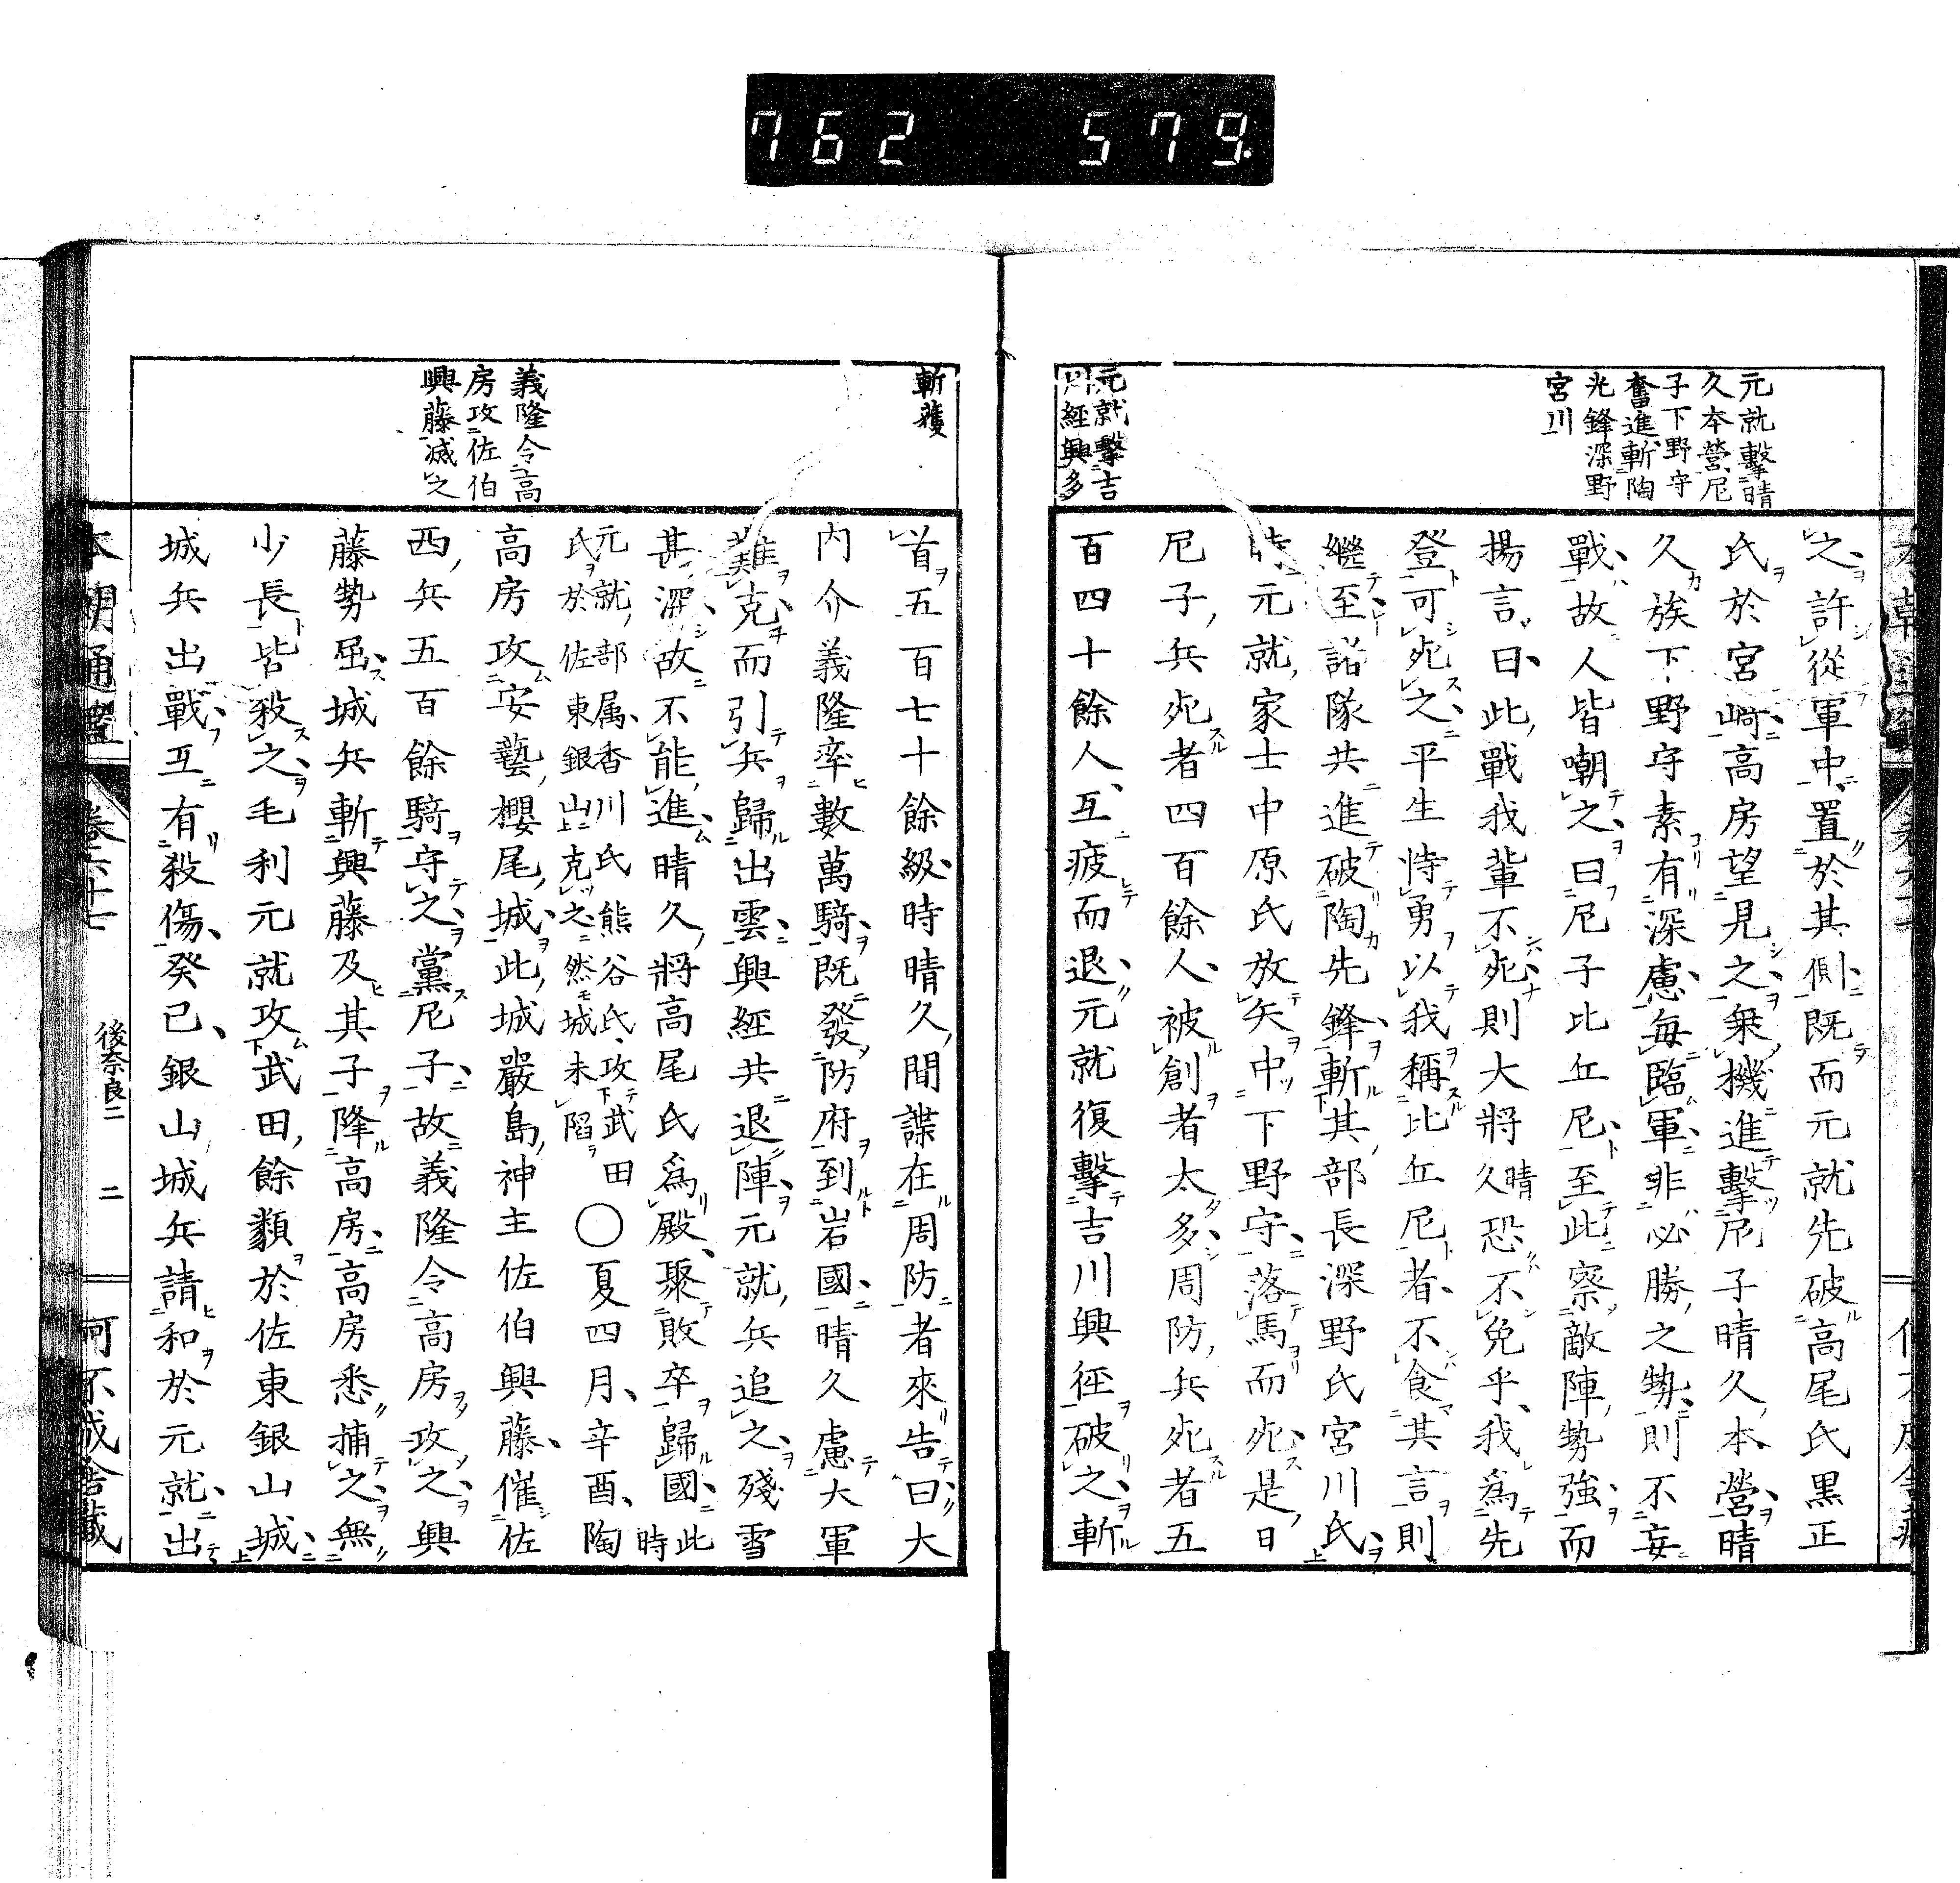 762 579
元就擊晴
久本營尼
子下野守
奮進斬陶
先鋒深野
宮川
元就擊吉
川經興多
之許從軍中置於其側既而元就先破高尾氏黒正
氏於宮﨑高房望見之乗機進擊尼子晴久本營晴
久族下野守素有深慮毎臨軍非必勝之勢則不妄
戰故人皆嘲之曰尼子比丘尼至此察敵陣勢強而
揚言曰此戰我輩不死則大將晴久恐不免乎我爲先
登可死之平生恃勇以我稱比丘尼者不食其言則
繼至諾隊共進破陶先鋒斬其部長深野氏宮川氏
時元就家士中原氏放矢中下野守落馬而死是日
尼子兵死者四百餘人被創者太多周防兵死者五
百四十餘人互疲而退元就復擊吉川興経破之斬
斬獲
義隆令高
房攻佐伯
興藤滅之
首五百七十餘級時晴久間諜在周防者來告曰大
内介義隆率數萬騎既發防府到岩國晴久慮大軍
難克而引兵歸出雲興經共退陣元就兵追之殘雪
甚深故不能進晴久將高尾氏爲殿聚敗卒歸國此時
元就部属香川氏熊谷氏攻武田
氏於佐東銀山克之然城未陷
○夏四月辛酉陶
高房攻安藝櫻尾城此城嚴島神主佐伯興藤催佐
西兵五百餘騎守之黨尼子故義隆令高房攻之興
藤勢屈城兵斬興藤及其子降高房高房悉捕之無
少長皆殺之毛利元就攻武田餘類於佐東銀山城
城兵出戰互有殺傷癸已銀山城兵請和於元就出
本朝通鑑 卷六十七 後奈良二 二